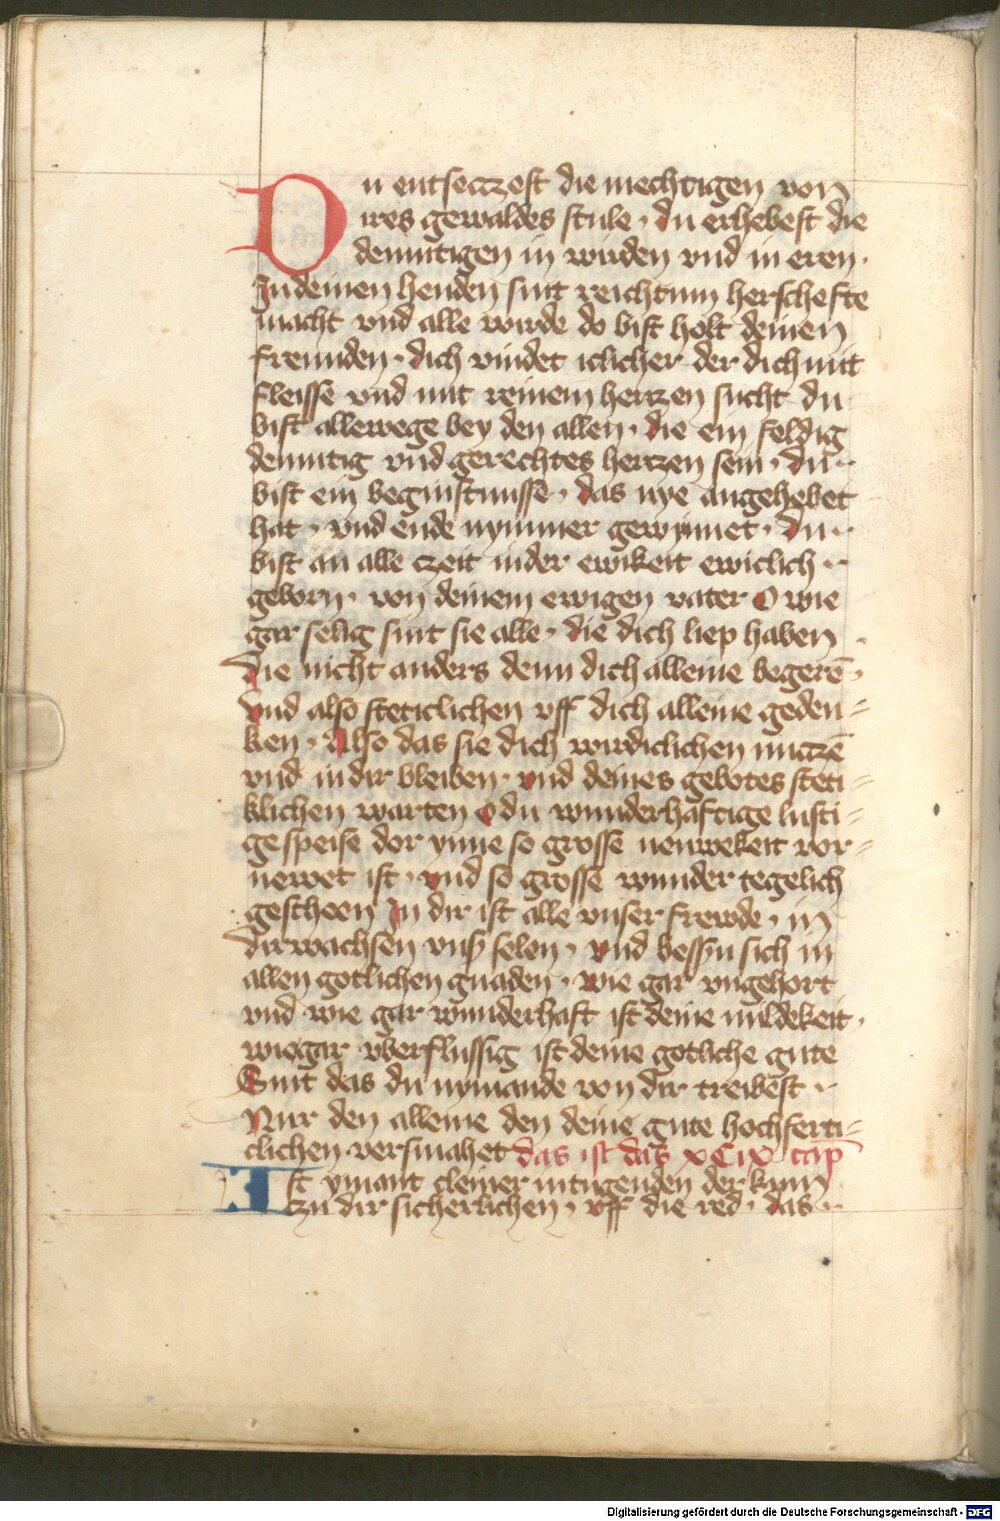 Du entseczest die mechtigen von
ires gewaldes stule · du erhebest die
demutigen in wirden vnd in eren ·
In deinen henden sint reichtum herschefte
macht vnd alle wirde do bist holt deinen
freunden · dich vindet iclicher der dich mit
fleisse vnd mit reinem hertzen sucht du
bist allewege bey den allen · die ein feldig
demutig vnd gerechtes hertzen sein · du ··
bist ein beginstnusse · das nye angehebet
hat · vnd ende nymmer gewynnet · du ··
bist an alle czeit in der ewikeit ewiclich ··
geborn · von deinem ewigen vater O wie
gar selig sint sie alle · die dich liep haben
die nicht anders denn dich alleine begerē ·
vnd also steticlichen vff dich alleine geden=
ken · Also das sie dich wirdiclichen nuczē
vnd in dir bleiben · vnd deines gebotes steti=
klichen warten O du wunderhaftige lusti=
ge speise dor ynne so grosse neuwekeit vor=
newet ist · vnd so grosse wunder tegelich
gescheen In dir ist alle vnser frewde · in
dir wachsen vnß selen · vnd bessyn sich in
allen gotlichen gnaden · wie gar vngehort
vnd wie gar wunderhaft ist deine mildekeit ·
wie gar vberflussig ist deine gotliche gute
Sint das du nymande von dir treibest ··
Nur den alleine den deine gute hochferti=
clichen versmahet das ist das xCix cap
Ist ymant cleiner in tugenden der kum
zu dir sicherlichen · vff die red · das ··
Digitalisierung gefördert durch die Deutsche Forschungsgemeinschaft - DFG